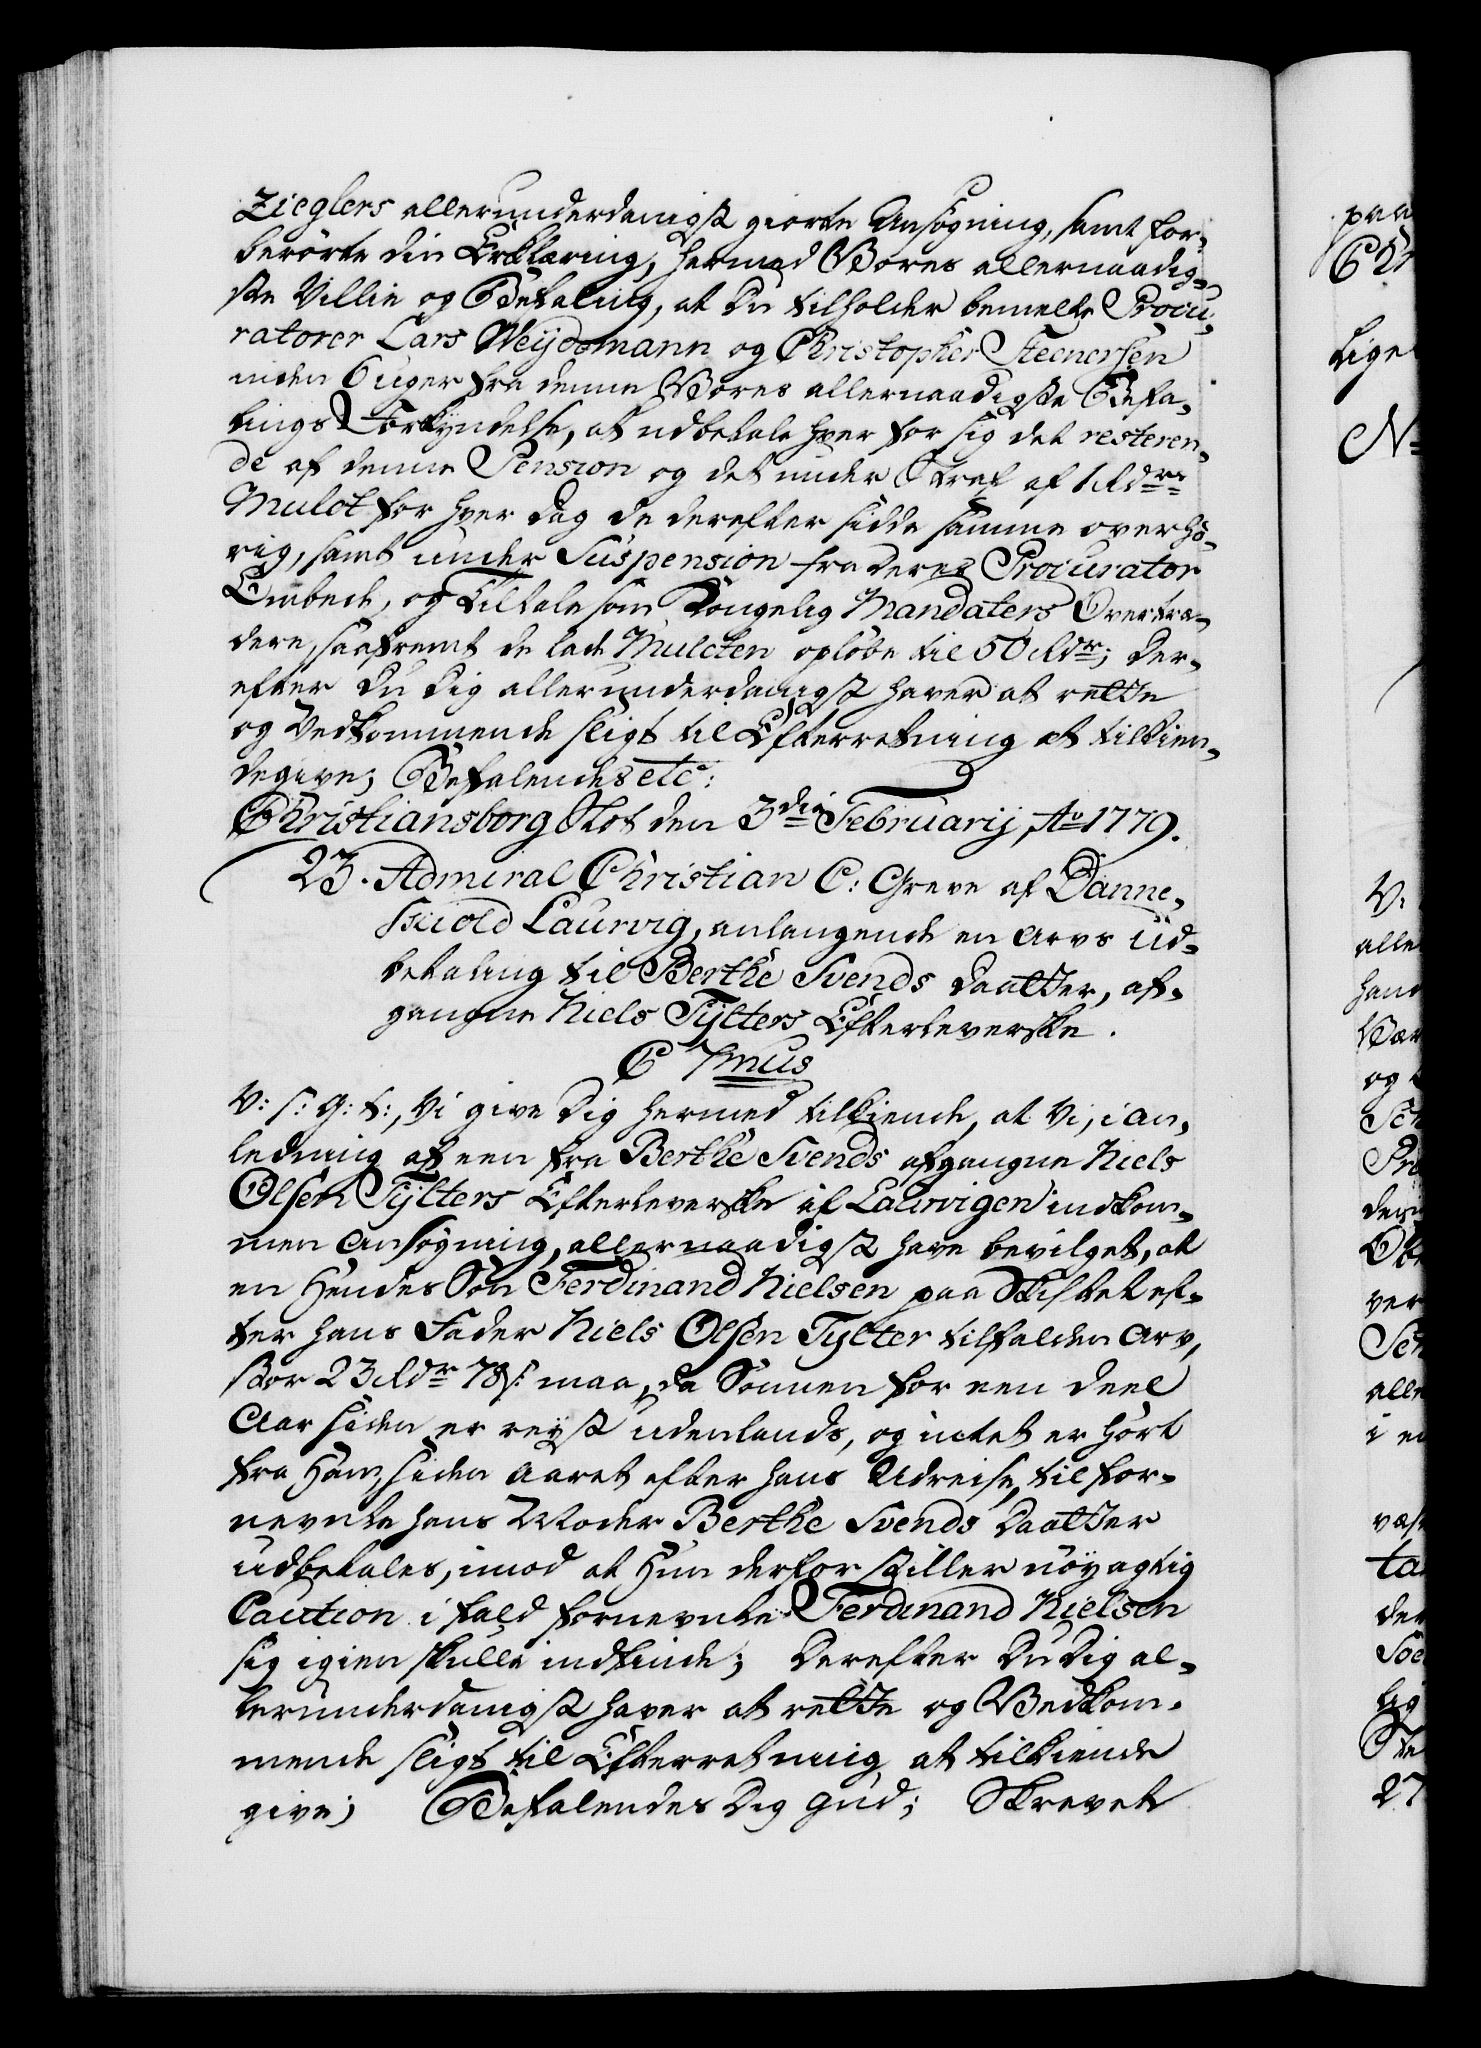 Zieglers allerunderdanigst giorte Ansøgning, samt for-
berørte din Erklæring, hermed Vores allernaadig-
ste Villie og Befaling, at Du tilholder bemelte Procu-
ratorer Lars Weydemann og Christopher Steenersen
inden 6 uger fra denne Vores allernaadigste Befa-
lings Forkyndelse, at udbetale hver for sig det resteren-
de af denne Pension og det under Straf af 1 Rdrs
Mulct for hver Dag de derefter sidde samme overhø-
rig, samt under Suspension fra deres Procurator
Embede, og Tiltale som Kongelig Mandaters Overtræ-
dere, saafremt de lade Mulcten opløbe til 50 Rdr; Der-
efter Du Dig allerunderdanigst haver at rette
og Vedkommende sligt til Efterretning at tilkien-
degive; Befalendes etc:
Christiansborg Slot den 3die Februarij Ao 1779.
23. Admiral Christian C: Greve af Danne-
skiold Laurvig, anlangende en Arvs Ud-
betaling til Berthe Svends Daatter, af-
gangne Niels Tylters Efterleverske.
C 7mus
V: S: G: T:, Vi give Dig hermed tilkiende, at Vi, i an-
ledning af een fra Berthe Svends afgangne Niels
Olsen Tylters Efterleverske af Laurvigen indkom-
men Ansøgning, allernaadigst have bevilget, at
en Hendes Søn Ferdinand Nielsen paa Skiftet ef-
ter hans Fader Niels Olsen Tylter tilfalden Arv,
stor 23 Rdr 78 s: maa, da Sønnen for een deel
Aar siden er reyst udenlands, og intet er hørt
fra Ham, siden Aaret efter hans Udreise, til for-
nevnte hans Moder Berthe Svends Daatter
udbetales, imod at Hun derfor stiller nøyagtig
Caution i fald fornevnte Ferdinand Nielsen
sig igien skulle indfinde; Derefter Du Dig al-
lerunderdanigst haver at rette og Vedkom-
mende sligt til Efterretning at tilkiende
give; Befalendes Dig Gud; Skrevet